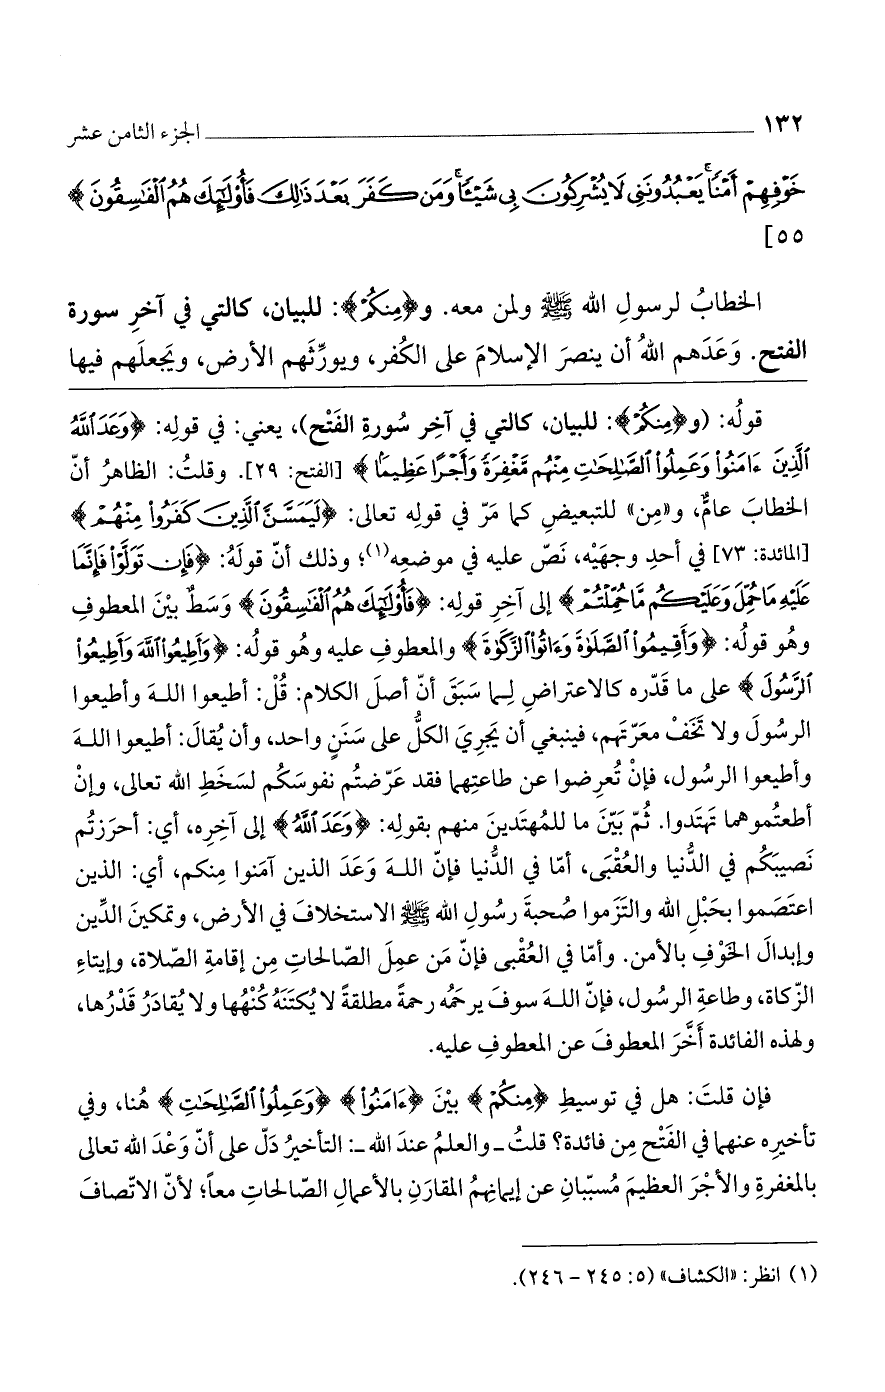 ١٣٢ الجزء الثامن عشر
خَوْفِهِمْ أَمْنًا يَعْبُدُونَنِي لَا يُشْرِكُونَ بِي شَيْئًا وَمَن كَفَرَ بَعْدَ ذَٰلِكَ فَأُوْلَٰئِكَ هُمُ ٱلْفَٰسِقُونَ﴾
٥٥]
الخطابُ لرسولِ الله ﷺ ولمن معه. و﴿مِنكُمْ﴾: للبيان، كالتي في آخرِ سورة
الفتح. وَعَدَهم اللهُ أن ينصرَ الإسلامَ على الكُفر، ويورِّثَهم الأرض، ويَجعلَهم فيها
قولُه: (و﴿مِنكُمْ﴾: للبيان، كالتي في آخِر سُورةِ الفَتْح)، يعني: في قولِه: ﴿وَعَدَ ٱللَّهُ
ٱلَّذِينَ ءَامَنُواْ وَعَمِلُواْ ٱلصَّٰلِحَٰتِ مِنْهُم مَّغْفِرَةً وَأَجْرًا عَظِيمًا﴾ [الفتح: ٢٩]. وقلتُ: الظاهرُ أنّ
الخطابَ عامٌّ، و«مِن» للتبعيضِ كما مَرّ في قولِه تعالى: ﴿لَيَمَسَّنَّ ٱلَّذِينَ كَفَرُواْ مِنْهُمْ﴾
[المائدة: ٧٣] في أحدِ وجهَيْه، نَصّ عليه في موضعِه(١)؛ وذلك أنّ قولَهُ: ﴿فَإِن تَوَلَّوْاْ فَإِنَّمَا
عَلَيْهِ مَا حُمِّلَ وَعَلَيْكُم مَّا حُمِّلْتُمْ﴾ إلى آخِرِ قولِه: ﴿فَأُوْلَٰئِكَ هُمُ ٱلْفَٰسِقُونَ﴾ وَسَطٌ بيْنَ المعطوفِ
وهُو قولُه: ﴿وَأَقِيمُواْ ٱلصَّلَوٰةَ وَءَاتُواْ ٱلزَّكَوٰةَ﴾ والمعطوفِ عليه وهُو قولُه: ﴿وَأَطِيعُواْ ٱللَّهَ وَأَطِيعُواْ
ٱلرَّسُولَ﴾ على ما قَدّره كالاعتراضِ لِما سَبَقَ أنّ أصلَ الكلام: قُلْ: أطيعوا اللهَ وأطيعوا
الرسُولَ ولا تَخَفْ معَرّتَهم، فينبغي أن يَجريَ الكلُّ على سَنَنٍ واحد، وأن يُقالَ: أطيعوا اللهَ
وأطيعوا الرسُول، فإنْ تُعرِضوا عن طاعتِهما فقد عَرّضتُم نفوسَكُم لسَخَطِ الله تعالى، وإنْ
أطعتُموهما تَهتَدوا. ثُمّ بَيّنَ ما للمُهتَدينَ منهم بقولِه: ﴿وَعَدَ ٱللَّهُ﴾ إلى آخِرِه، أي: أحرَزتُم
نَصيبَكُم في الدُّنيا والعُقْبَى، أمّا في الدُّنيا فإنّ اللهَ وَعَدَ الذين آمَنوا مِنكم، أي: الذين
اعتَصَموا بحَبْلِ الله والتَزَموا صُحبةَ رسُولِ الله ﷺ الاستخلافَ في الأرض، وتمكينَ الدِّين
وإبدالَ الخَوْفِ بالأمن. وأمّا في العُقْبى فإنّ مَن عمِلَ الصّالحاتِ مِن إقامةِ الصّلاة، وإيتاءِ
الزّكاة، وطاعةِ الرسُول، فإنّ اللهَ سوفَ يرحَمُه رحمةً مطلقةً لا يُكتَنَهُ كُنْهُها ولا يُقادَرُ قَدْرُها،
ولهذه الفائدة أَخَّرَ المعطوفَ عن المعطوفِ عليه.
فإن قلتَ: هل في توسيطِ ﴿مِنكُمْ﴾ بيْنَ ﴿ءَامَنُواْ﴾ ﴿وَعَمِلُواْ ٱلصَّٰلِحَٰتِ﴾ هُنا، وفي
تأخيرِه عنهما في الفَتْح مِن فائدة؟ قلتُ ـ والعلمُ عندَ الله ـ: التأخيرُ دَلّ على أنّ وَعْدَ الله تعالى
بالمغفرةِ والأجْرَ العظيمَ مُسبّبانِ عن إيمانِهمُ المقارَنِ بالأعمالِ الصّالحاتِ معاً؛ لأنّ الاتّصافَ
(١) انظر: «الكشاف» (٥: ٢٤٥ - ٢٤٦).